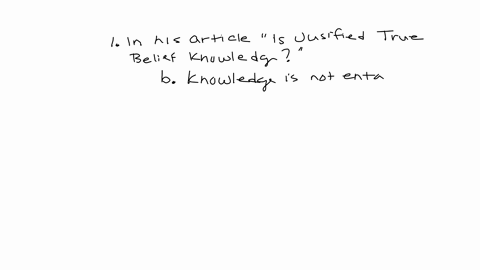 1. In his article "Is Jusified True
Belief Knowledge?"
b. Knowledge is not enta